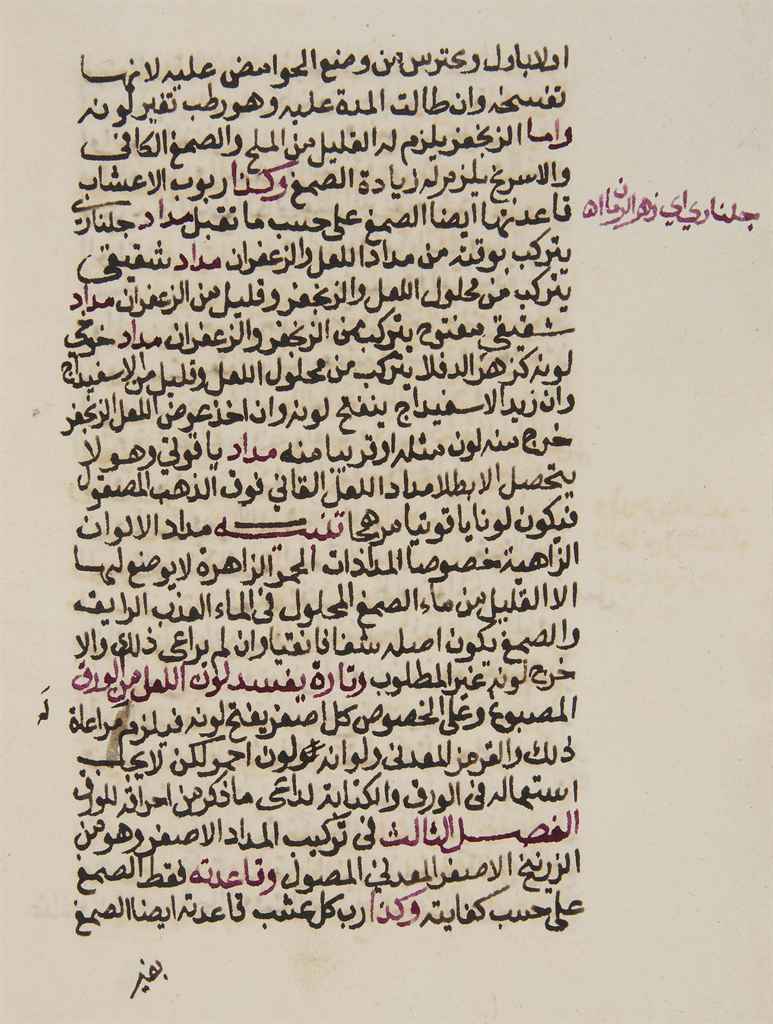 اولا باول ويحترس من وضع الحوامض عليه لانها
تفسخه وان طالت المدة عليه وهو رطب تغير لونه
واما الزنجفر يلزم له القليل من الملح والصمغ الكافي
والاسرنج يلزم له زيادة الصمغ وكذا ربوب الاعشاب
قاعدتها ايضا الصمغ على حسب ما تقبل مداد جلناري
جلناري اي زهر الرمان اه
يتركب بوقته من مداد اللعل والزعفران مداد شقيقي
يتركب من محلول اللعل والزنجفر وقليل من الزعفران مداد
شقيقي مفتوح يتركب من الزنجفر والزعفران مداد خوخي
لونه كزهر الدفلا يتركب من محلول اللعل وقليل من الاسفيداج
وان زيد الاسفيداج ينفتح لونه وان اخذ عوض اللعل الزنجفر
خرج منه لون مثله او قريبا منه مداد ياقوتي وهو لا
يتحصل الا بطلا مداد اللعل القاني فوق الذهب المصقول
فيكون لونا ياقوتيا مبرهجا تنبيه مداد الالوان
الزاهية خصوصا المدادات الحمر الزاهرة لا يوضع لها
الا القليل من ماء الصمغ المحلول في الماء العذب الرايق
والصمغ يكون اصله شفافا نقيا وان لم يراعى ذلك والا
خرج لونه غير المطلوب وتارة يفسد لون اللعل من الورق
المصبوغ وعلى الخصوص كل اصفر يفتح لونه فيلزم مراعاة
له
ذلك والقرمز المعدني ولو انه لون احمر لكن لا يجب
استعماله في الورق والكتابة لداعى ما ذكر من احراقه للورق
الفصل الثالث في تركيب المداد الاصفر وهو من
الزرنيخ الاصفر المعدني المصول وقاعدته فقط الصمغ
على حسب كفايته وكذا رب كل عشب قاعدته ايضا الصمغ
بغير